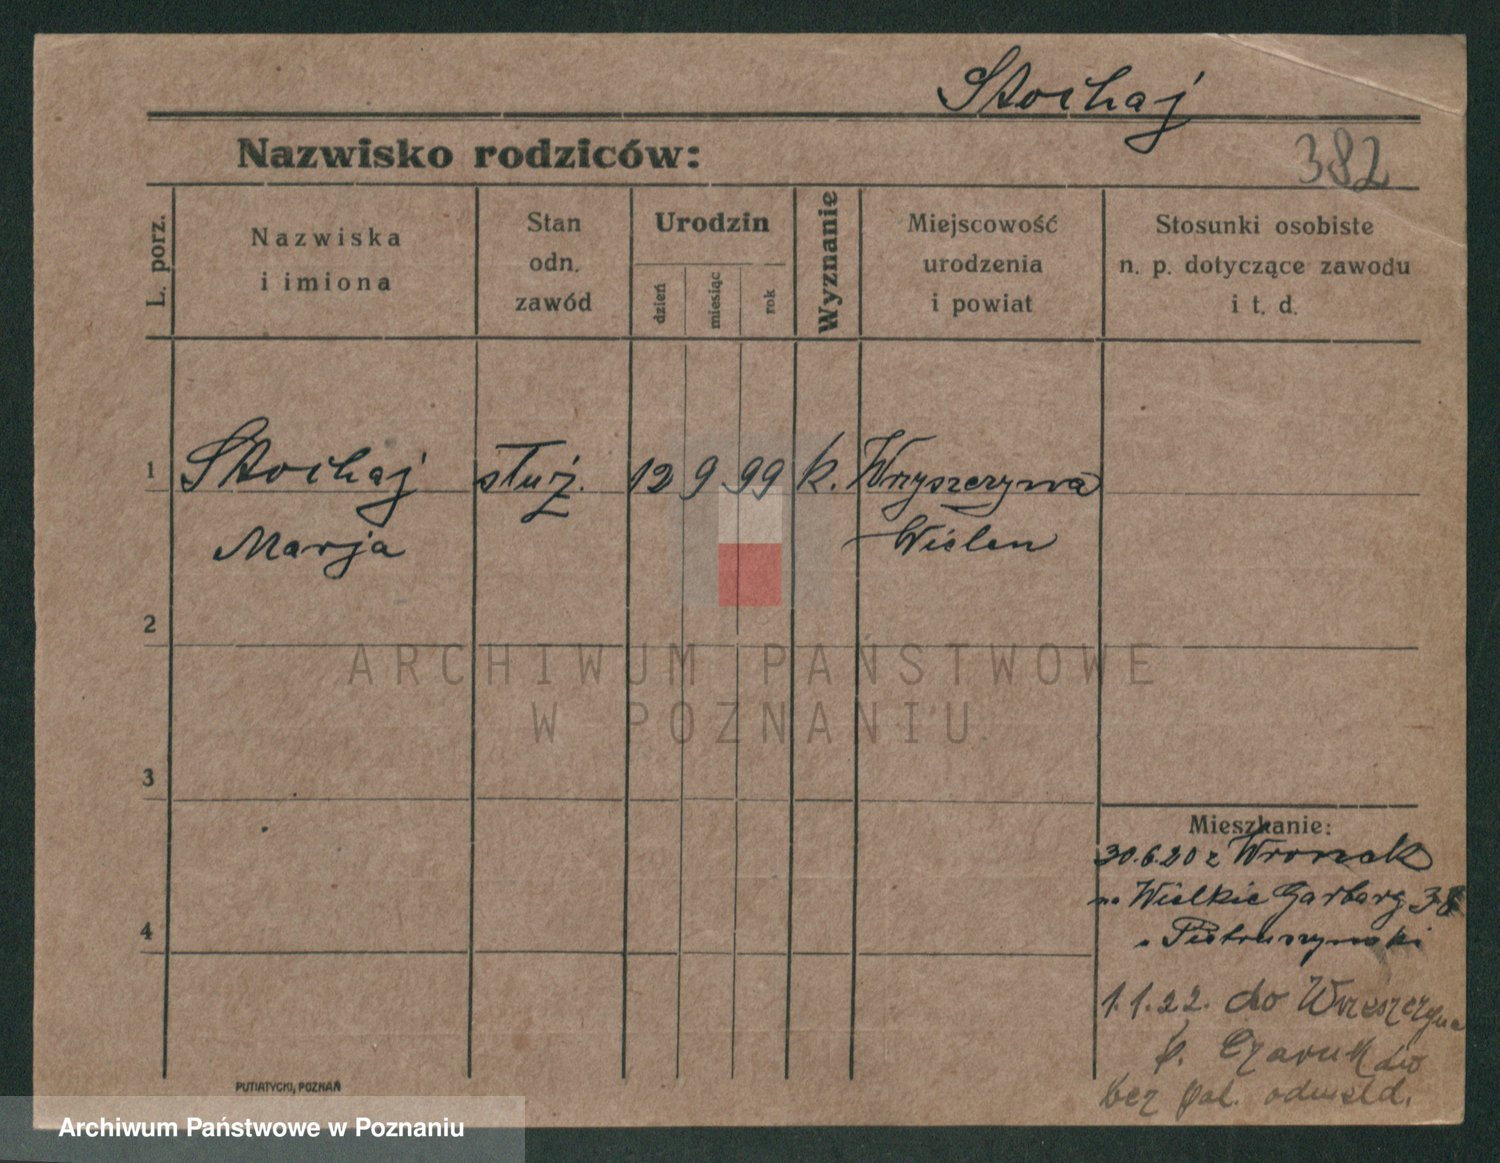 Stochaj
Nazwisko rodziców:
382
L. porz.
Nazwiska
i imiona
Stan
odn.
zawód
Urodzin
dzień
miesiąc
rok
Wyznanie
Miejscowość
urodzenia
i powiat
Stosunki osobiste
n. p. dotyczące zawodu
i t. d.
1 Stochaj służ. 12 9 99 k. Wrzyszczyna
Marja Wielen
2
3
4
ARCHIWUM PAŃSTWOWE
W POZNANIU
Mieszkanie:
30.6.20 z Wronek
na Wielkie Garbary 38
Pietruszynski
1.1.22. do Wrzeszczyna
p. Czarnków
bez pol. odmeld.
PUTIATYCKI, POZNAŃ
Archiwum Państwowe w Poznaniu